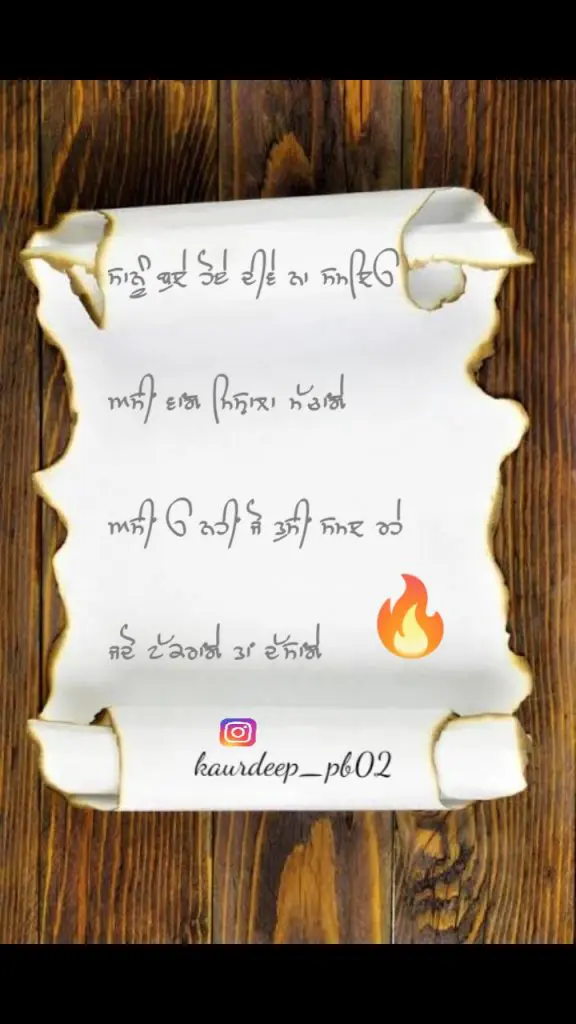 ਸਾਨੂੰ ਬੁਝੇ ਹੋਏ ਦੀਵੇ ਨਾ ਸਮਝਿਓ
ਅਸੀ ਵਾਂਗ ਮਿਸ਼ਾਲਾ ਮੱਚਾਂਗੇ
ਅਸੀ ਓ ਨਹੀ ਜੋ ਤੁਸੀ ਸਮਝ ਰਹੇ
ਜਦੋ ਟੱਕਰਾਂਗੇ ਤਾਂ ਦੱਸਾਂਗੇ
kaurdeep_pb02